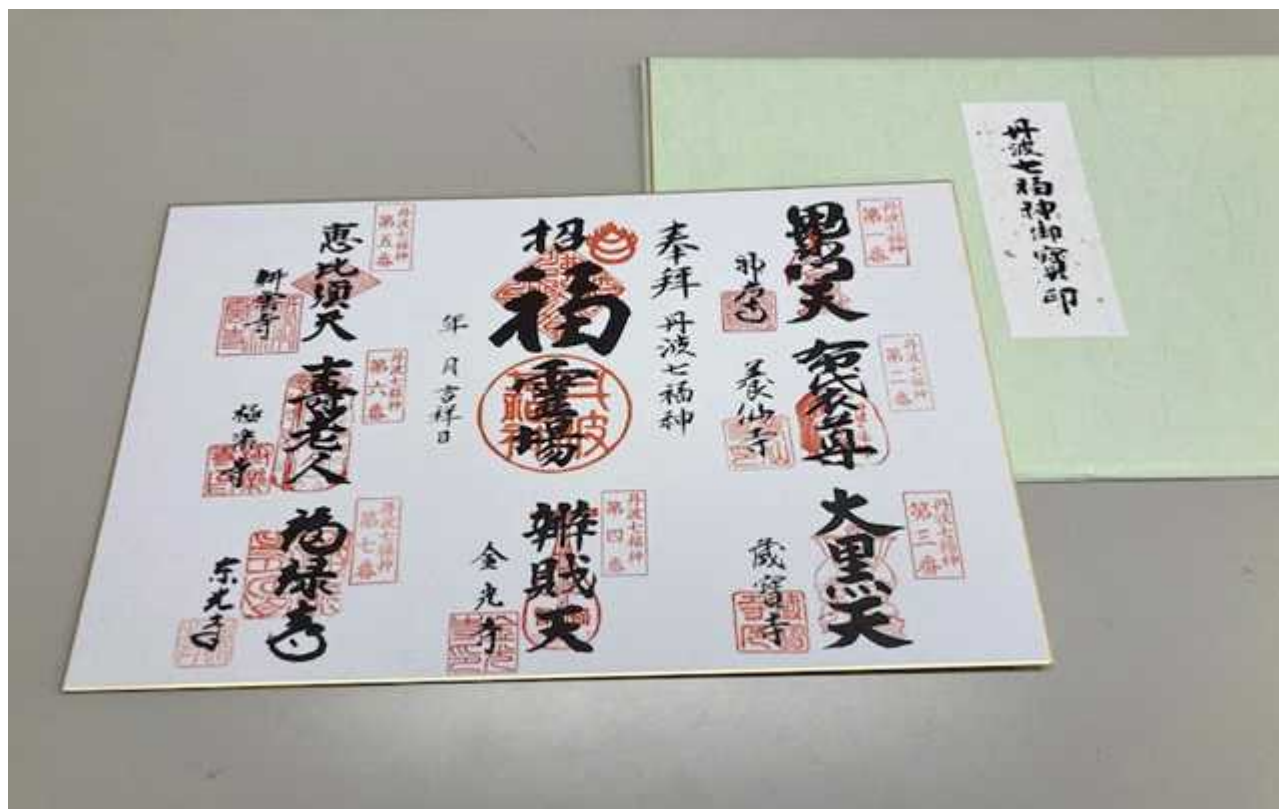 丹波七福神
第一番
毘沙門天
丹波七福神
第二番
布袋尊
養仙寺
丹波七福神
第三番
大黒天
蔵寶寺
奉拝 丹波七福神
招福霊場
丹波
年 月吉祥日
丹波七福神
第四番
辨財天
金光寺
丹波七福神
第五番
恵比須天
耕雲寺
丹波七福神
第六番
寿老人
極楽寺
丹波七福神
第七番
福禄寿
丹波七福神御寳印